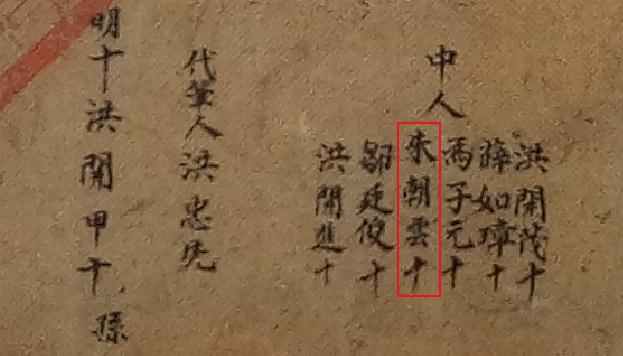 中人
洪開茂十
薛如璋十
馮子元十
朱朝雲十
鄒廷俊十
洪開進十
代筆人洪忠先
明十洪開甲十孫